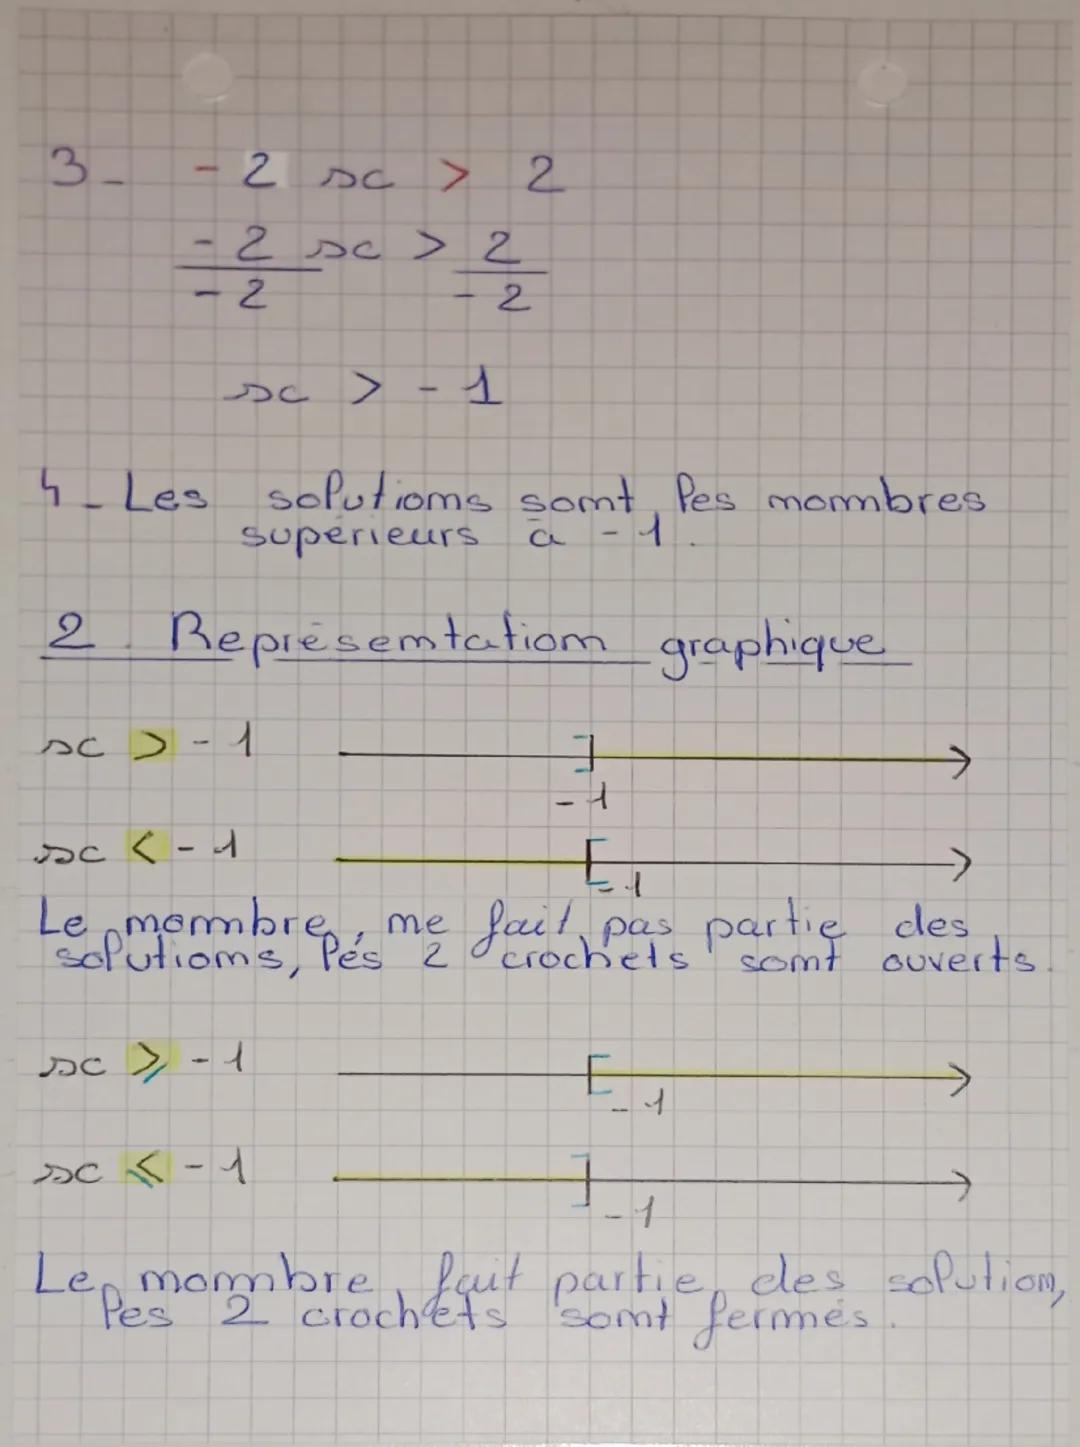 3- -2 x > 2
-2 x > 2
-2 -2
x > -1
4- Les solutions sont les nombres
supérieurs à -1.
2. Représentation graphique
x > -1 ]
-1
x < -1 [
-1
Le nombre, ne fait pas partie des
solutions, les 2 crochets sont ouverts.
x ⩾ -1 [
-1
x ⩽ -1 ]
-1
Le nombre fait partie des solution,
les 2 crochets sont fermés.